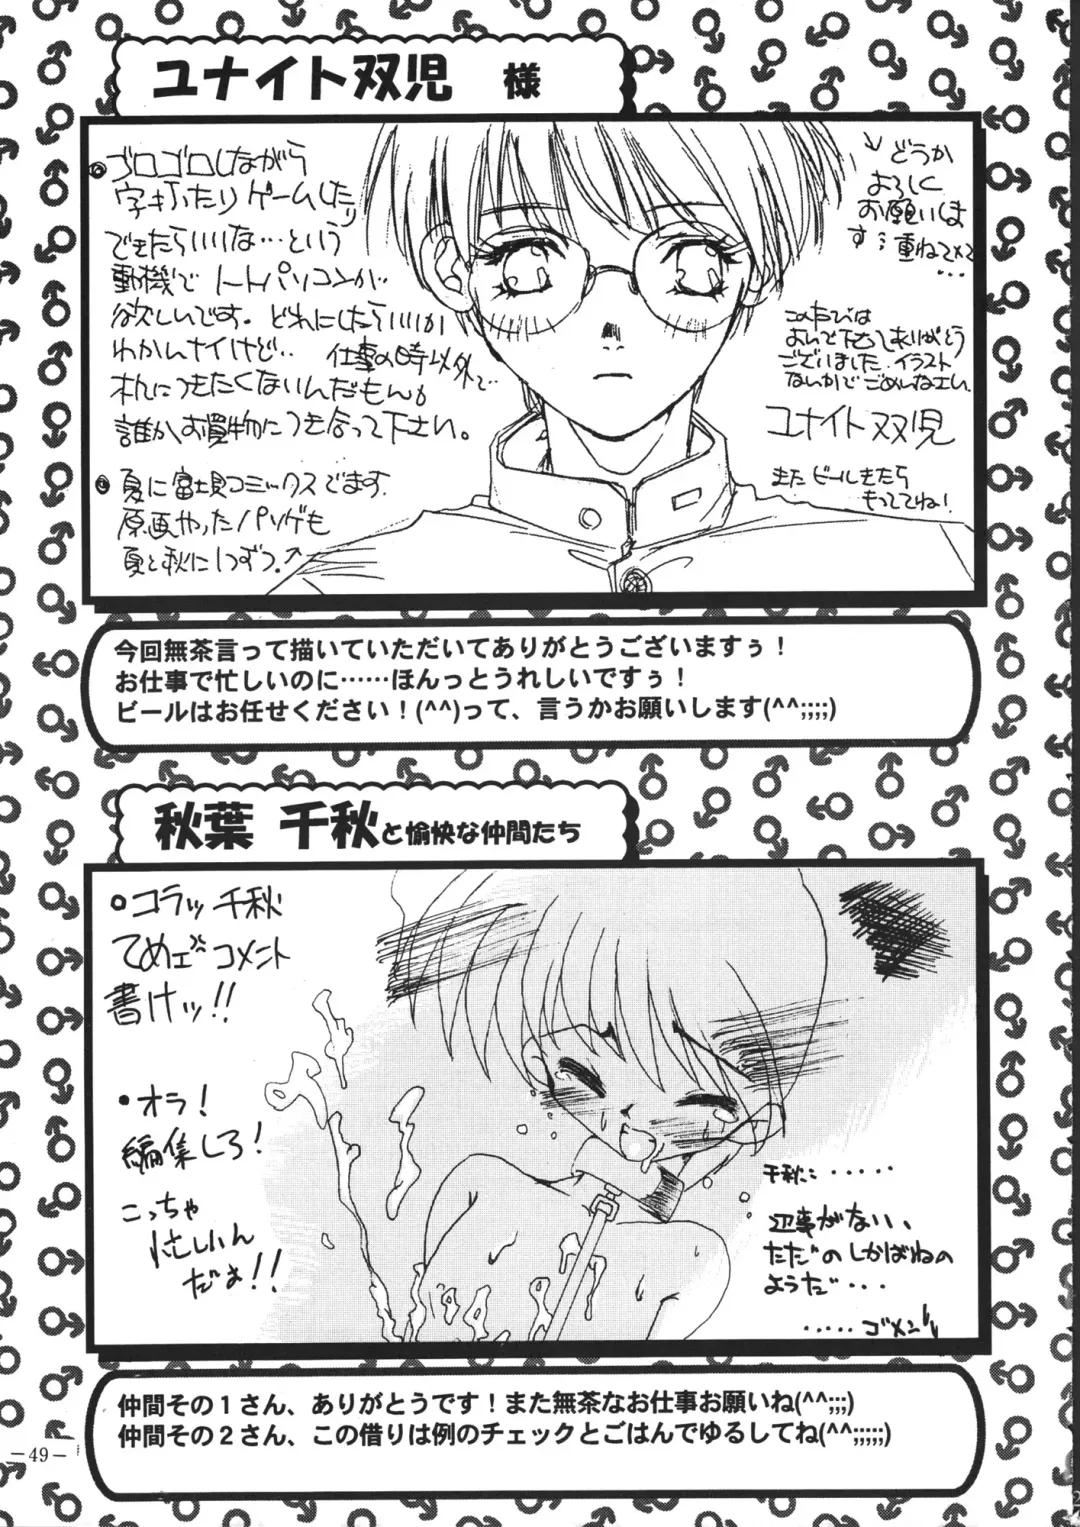 ユナイト双児 様
ゴロゴロしながら
字打ったりゲームしたり
できたらいいな…という
動機でノートパソコンが
欲しいです。どれにしたらいいか
わかんナイけど‥仕事の時以外で‥
机につきたくないんだもん。
誰か、お買物につき合って下さい。
夏に富士見コミックスでます。
原画やったパソゲも
夏と秋に1つずつ。↗
↘どうか
よろしく
お願いしま
す：重ねて××
...
このたびは
よんで下さってありがとう
ございました。イラスト
なんかでごめんなさい。
ユナイト双児
またビールきたら
もってってね！
今回無茶言って描いていただいてありがとうございますぅ！
お仕事で忙しいのに……ほんっとうれしいですぅ！
ビールはお任せください！(^^)って、言うかお願いします(^^;;;;)
秋葉 千秋と愉快な仲間たち
コラッ千秋
てめェ コメント
書けッ!!
・オラ！
編集しろ！
こっちゃ
忙しいん
だよ!!
千秋に・・・・・
返事がない、
ただの しかばねの
ようだ・・・
・・・・・ゴメンッ
仲間その１さん、ありがとうです！また無茶なお仕事お願いね(^^;;;)
仲間その２さん、この借りは例のチェックとごはんでゆるしてね(^^;;;;;)
－49－